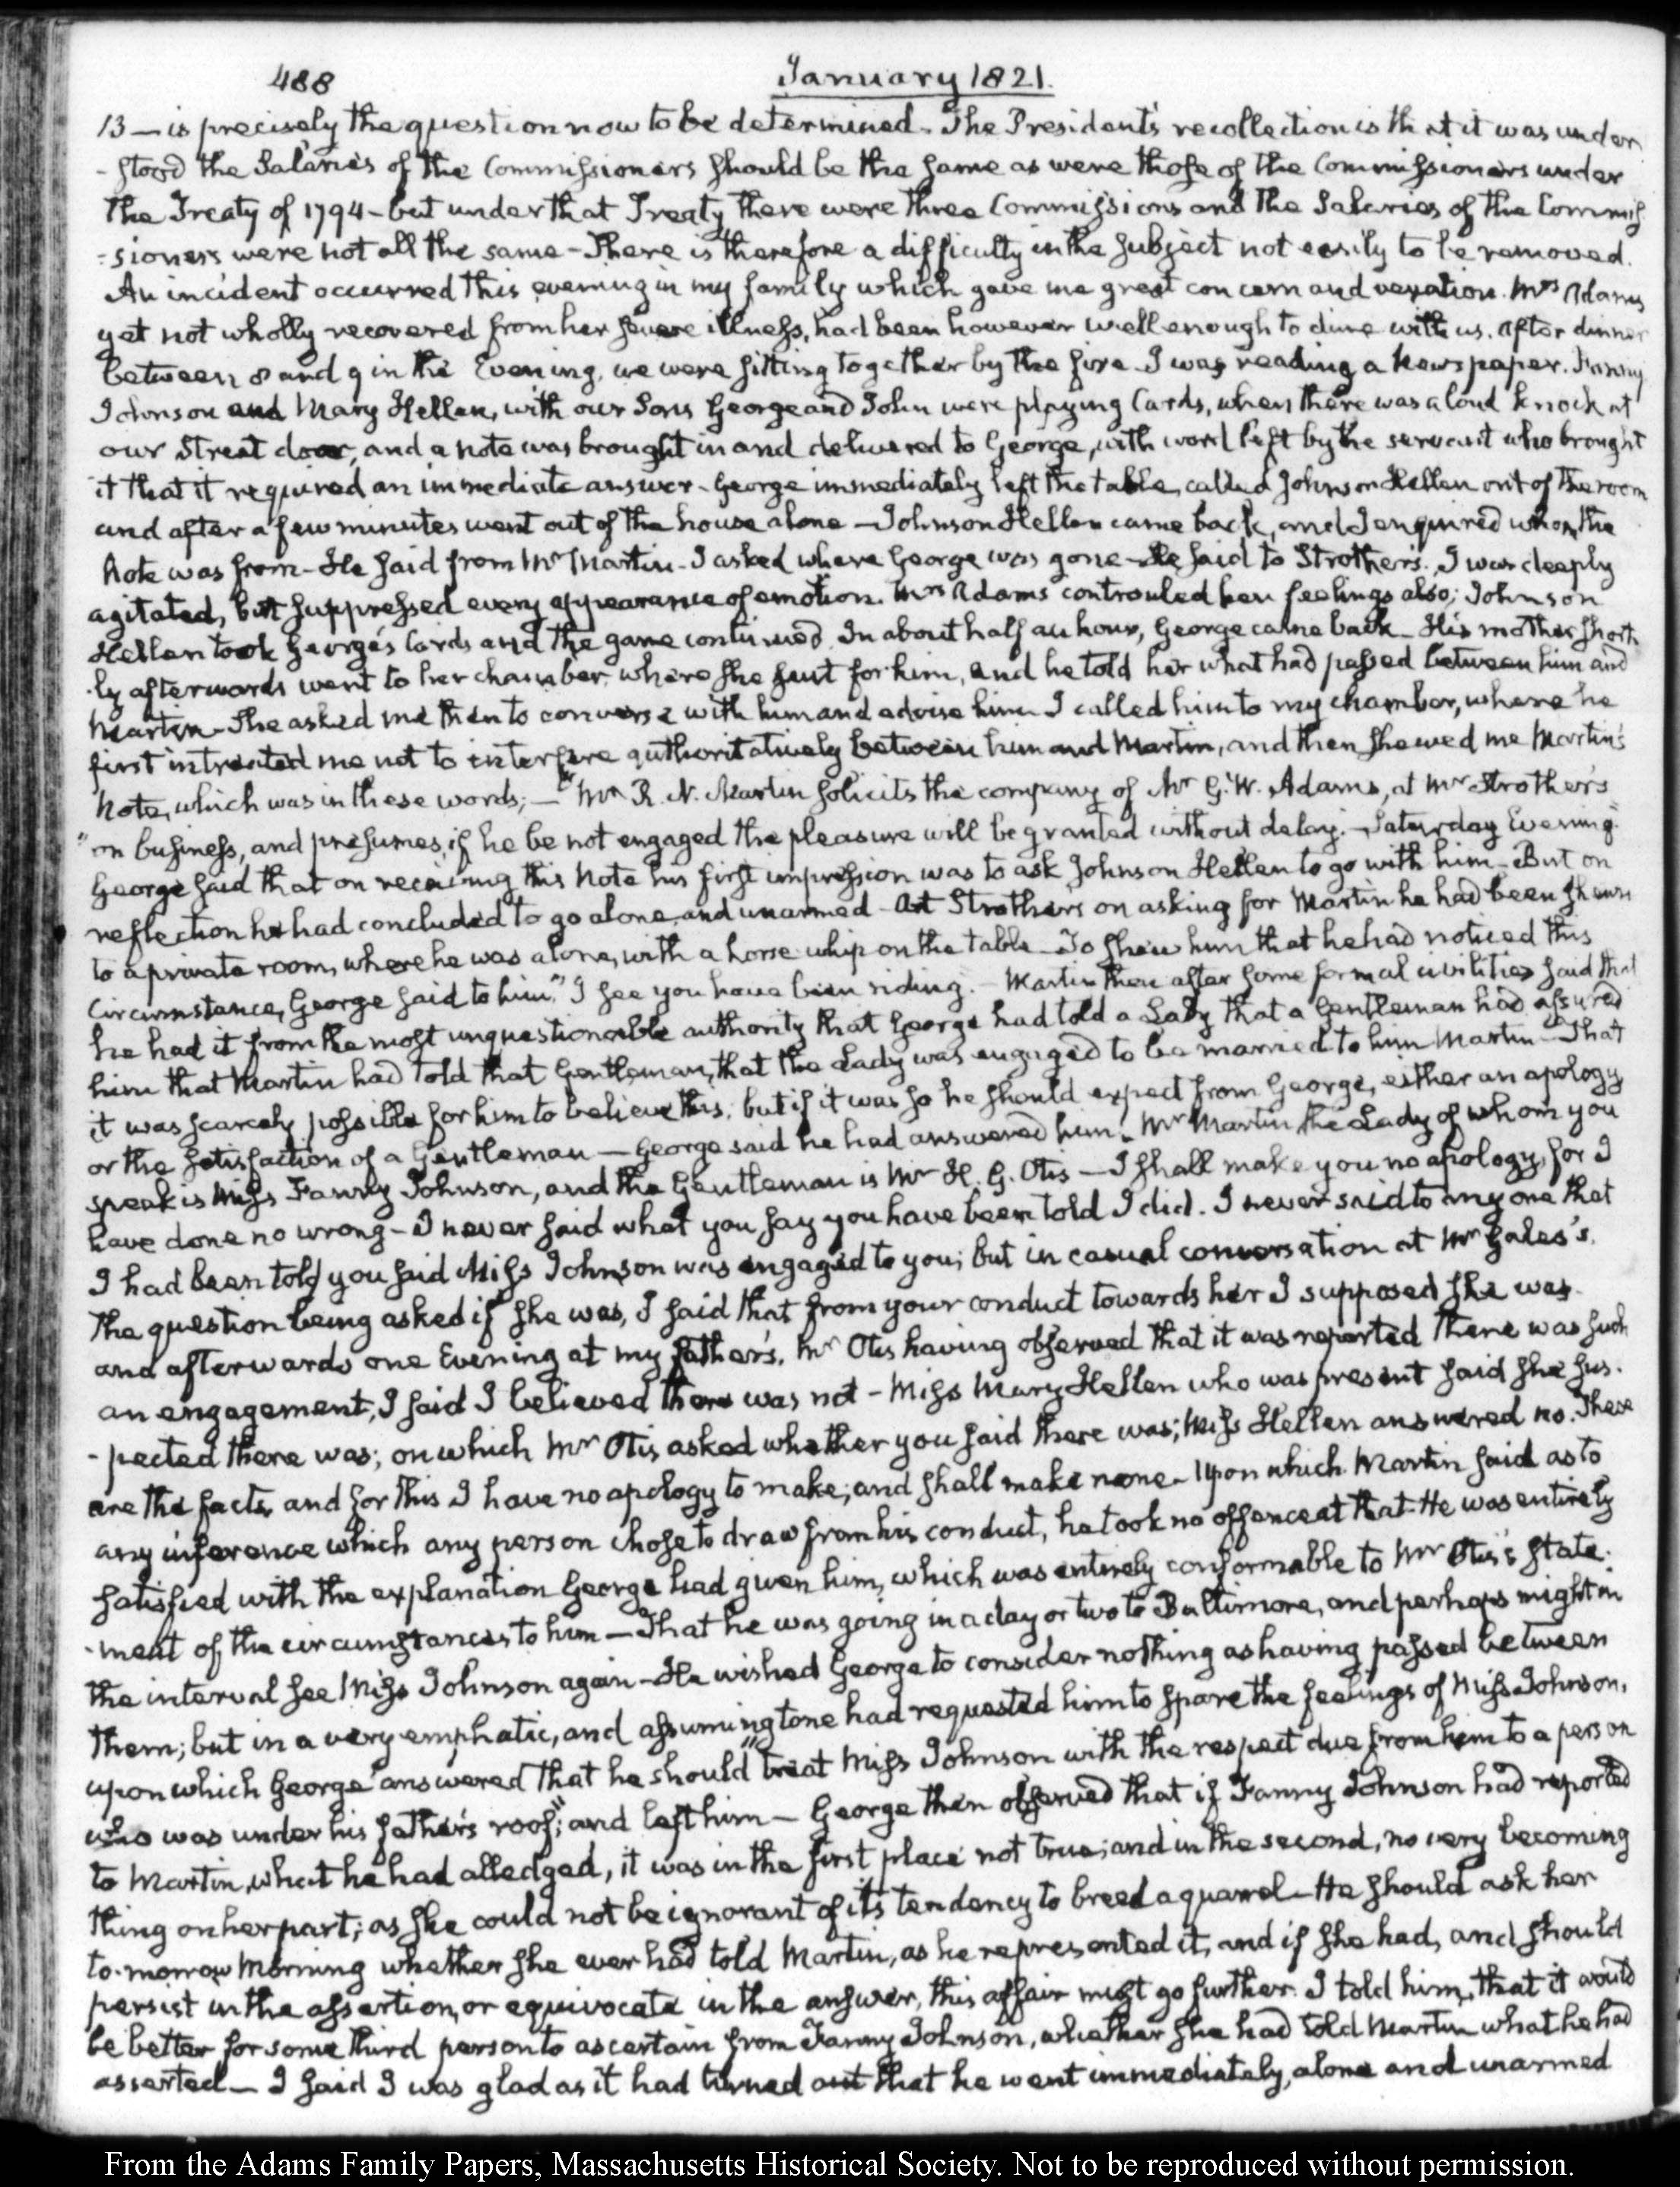 488
January 1821.
13 — is precisely the question now to be determined - The President's recollection is that it was under
- stood the Salaries of the Commissioners should be the same as were those of the Commissioners under
the Treaty of 1794 - but under that Treaty there were three Commissions and the Salaries of the Commis
- sioners were not all the same - There is therefore a difficulty in the subject not easily to be removed.
An incident occurred this evening in my family which gave me great concern and vexation. Mrs Adams
yet not wholly recovered from her severe illness, had been however well enough to dine with us. After dinner
between 8 and 9 in the Evening, we were sitting together by the fire - I was reading a Newspaper. Fanny
Johnson and Mary Hellen, with our Sons George and John were playing Cards, when there was a loud knock at
our Street door, and a note was brought in and delivered to George, with word left by the servant who brought
it that it required an immediate answer - George immediately left the table, called Johnson Hellen out of the room
and after a few minutes went out of the house alone — Johnson Hellen came back, and I enquired whom the
Note was from - He said from Mr Martin - I asked where George was gone - He said to Strother's. I was deeply
agitated, but suppressed every appearance of emotion. Mrs Adams controuled her feelings also; Johnson
Hellen took George's Cards and the game continued. In about half an hour, George came back - His mother short
- ly afterwards went to her chamber, where she sent for him, and he told her what had passed between him and
Martin - She asked me then to converse with him and advise him - I called him to my chamber, where he
first intreated me not to interfere authoritatively between him and Martin, and then shewed me Martin's
Note, which was in these words; — "Mr R. N. Martin solicits the company of Mr G. W. Adams, at Mr Strother's
"on business, and presumes, if he be not engaged the pleasure will be granted without delay. — Saturday Evening."
George said that on receiving this Note his first impression was to ask Johnson Hellen to go with him - But on
reflection he had concluded to go alone, and unarmed - At Strothers on asking for Martin he had been shewn
to a private room, where he was alone, with a horse whip on the table - To shew him that he had noticed this
Circumstance, George said to him, "I see you have been riding." - Martin then after some formal civilities said that
he had it from the most unquestionable authority that George had told a Lady that a Gentleman had assured
him that Martin had told that Gentleman, that the Lady was engaged to be married to him Martin - That
it was scarcely possible for him to believe this; but if it was so he should expect from George, either an apology
or the satisfaction of a Gentleman — George said he had answered him: Mr Martin, the Lady of whom you
speak is Miss Fanny Johnson, and the Gentleman is Mr H. G. Otis — I shall make you no apology, for I
have done no wrong - I never said what you say you have been told I did. I never said to any one that
I had been told you said Miss Johnson was engaged to you; but in casual conversation at Mr Gales's,
the question being asked if she was, I said that from your conduct towards her I supposed she was.
and afterwards one Evening at my father's, Mr Otis having observed that it was reported there was such
an engagement, I said I believed there was not - Miss Mary Hellen who was present said she sus.
- pected there was; on which Mr Otis asked whether you said there was; Miss Hellen answered no. These
are the facts, and for this I have no apology to make; and shall make none - Upon which Martin said as to
any inference which any person chose to draw from his conduct, he took no offence at that - He was entirely
satisfied with the explanation George had given him, which was entirely conformable to Mr Otis's state.
- ment of the circumstances to him — That he was going in a day or two to Baltimore, and perhaps might in
the interval see Miss Johnson again - He wished George to consider nothing as having passed between
them; but in a very emphatic, and assuming tone had requested him to spare the feelings of Miss Johnson,
upon which George answered that he should "treat Miss Johnson with the respect due from him to a person
who was under his father's roof;" and left him — George then observed that if Fanny Johnson had reported
to Martin, what he had alledged, it was in the first place not true; and in the second, no very becoming
thing on her part; as she could not be ignorant of its tendency to breed a quarrel - He should ask her
to-morrow Morning whether she ever had told Martin, as he represented it, and if she had, and should
persist in the assertion, or equivocate in the answer, this affair must go further. I told him, that it would
be better for some third person to ascertain from Fanny Johnson, whether she had told Martin what he had
asserted — I said I was glad as it had turned out that he went immediately, alone and unarmed
From the Adams Family Papers, Massachusetts Historical Society. Not to be reproduced without permission.